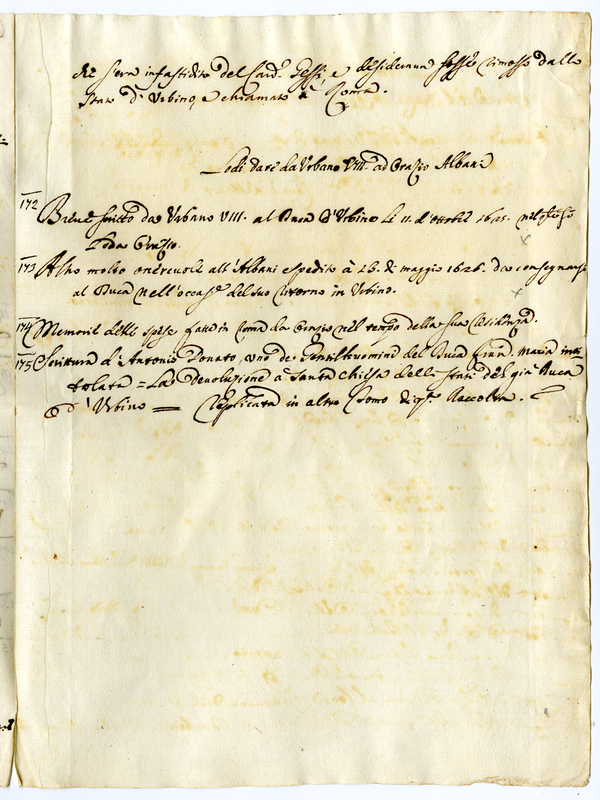 che s'era infastidito del Card. Gessi, e desiderava fosse rimosso dallo
stato d'Urbino, e chiamato à Roma.
Lodi date da Urbano VIII. ad Orazio Albani
172 Breve scritto da Urbano VIII. al Duca d'Urbino li 11. d'ottobre 1625. nel
Loda Orazio.
173 Altro molto onorevole all'Albani spedito à 16. di maggio 1626. da consegnarsi
al Duca nell'occas.e del suo ritorno in Urbino.
174 Memorie delle spese fatte in Roma da Orazio nel tempo della sua Residenza.
175 Scrittura d'Antonio Donato, uno de Gentilhuomini del Duca Fran. Maria inti
tolata = La devoluzione à Santa Chiesa delli Stati del già Duca
d'Urbino = Replicata in altro Tomo di q.a Raccolta.